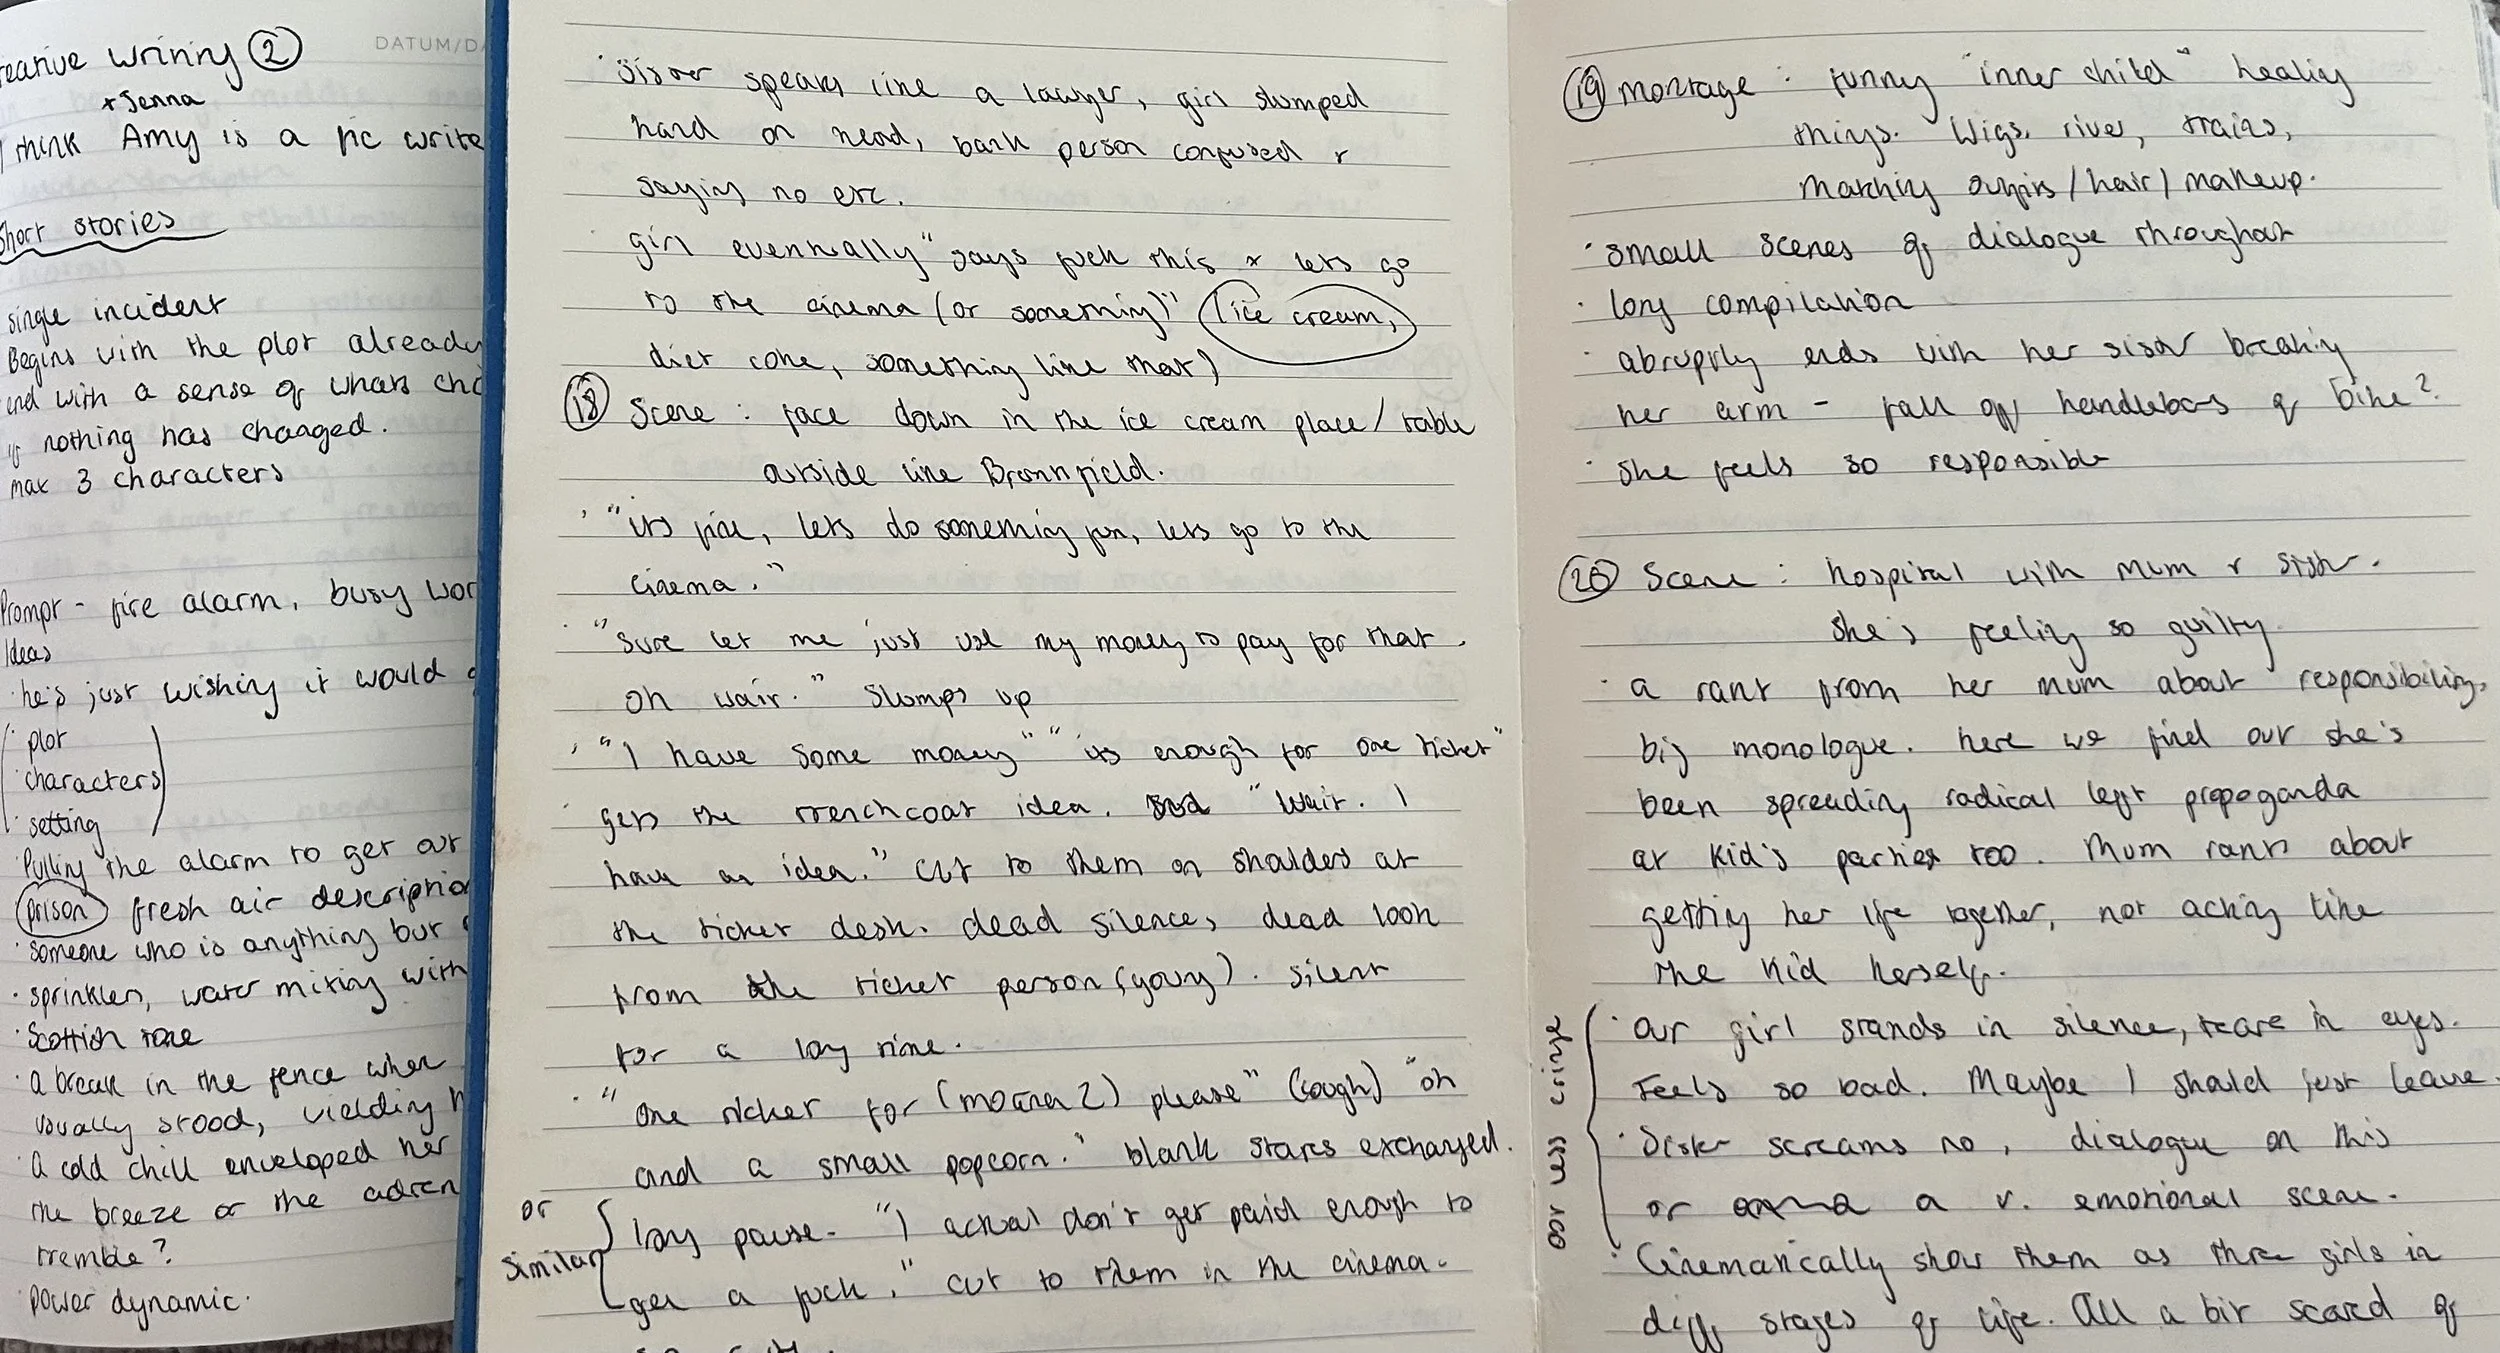 Creative writing ②
+ Jenna
I think Amy is a fic write
Short stories
single incident
Begins with the plot already
end with a sense of whats cha
if nothing has changed.
max 3 characters
DATUM/DA
Prompt - fire alarm, busy wor
Ideas
· he's just wishing it would g
· plot
· characters
· setting
· Pulling the alarm to get out
prison fresh air description
· Someone who is anything but
· sprinklers, water mixing with
· Scottish tone
· a break in the fence wher
usually stood, yielding h
· A cold chill enveloped her
the breeze or the adren
tremble?
· Power dynamic.
· Sister speaks like a lawyer, girl slumped
hand on head, bank person confused +
saying no etc.
· girl eventually "says fuck this + lets go
to the cinema (or something)" (ice cream,
diet coke, something like that)
⑱ Scene : face down in the ice cream place / table
outside like Bromfield.
· "its fine, lets do something fun, lets go to the
cinema."
· "Sure let me just use my money to pay for that.
oh wait." Slumps up
· "I have some money" "its enough for one ticket"
· gets the trenchcoat idea. "Wait. I
have an idea." Cut to them on shoulders at
the ticket desk. dead silence, dead look
from the ticket person (young). Silent
for a long time.
· "One ticket for (Moana 2) please" (cough) "oh
and a small popcorn." blank stares exchanged.
or
similar
long pause. "I actual don't get paid enough to
give a fuck." cut to them in the cinema.
⑲ Montage : funny "inner child" healing
things. Wigs, river, trains,
Matching outfits / hair / makeup.
· small scenes of dialogue throughout
· long compilation
· abruptly ends with her sister breaking
her arm - fall off handlebars of bike?
· She feels so responsible
⑳ Scene : hospital with mum + sister.
She's feeling so guilty.
· a rant from her mum about responsibility,
big monologue. here we find out she's
been spreading radical left propaganda
at kid's parties too. Mum rants about
getting her life together, not acting like
the kid herself.
or less cringe
· Our girl stands in silence, tears in eyes.
Feels so bad. Maybe I should just leave.
· Sister screams no, dialogue on this
or a v. emotional scene.
· Cinematically show them as three girls in
diff stages of life. All a bit scared of